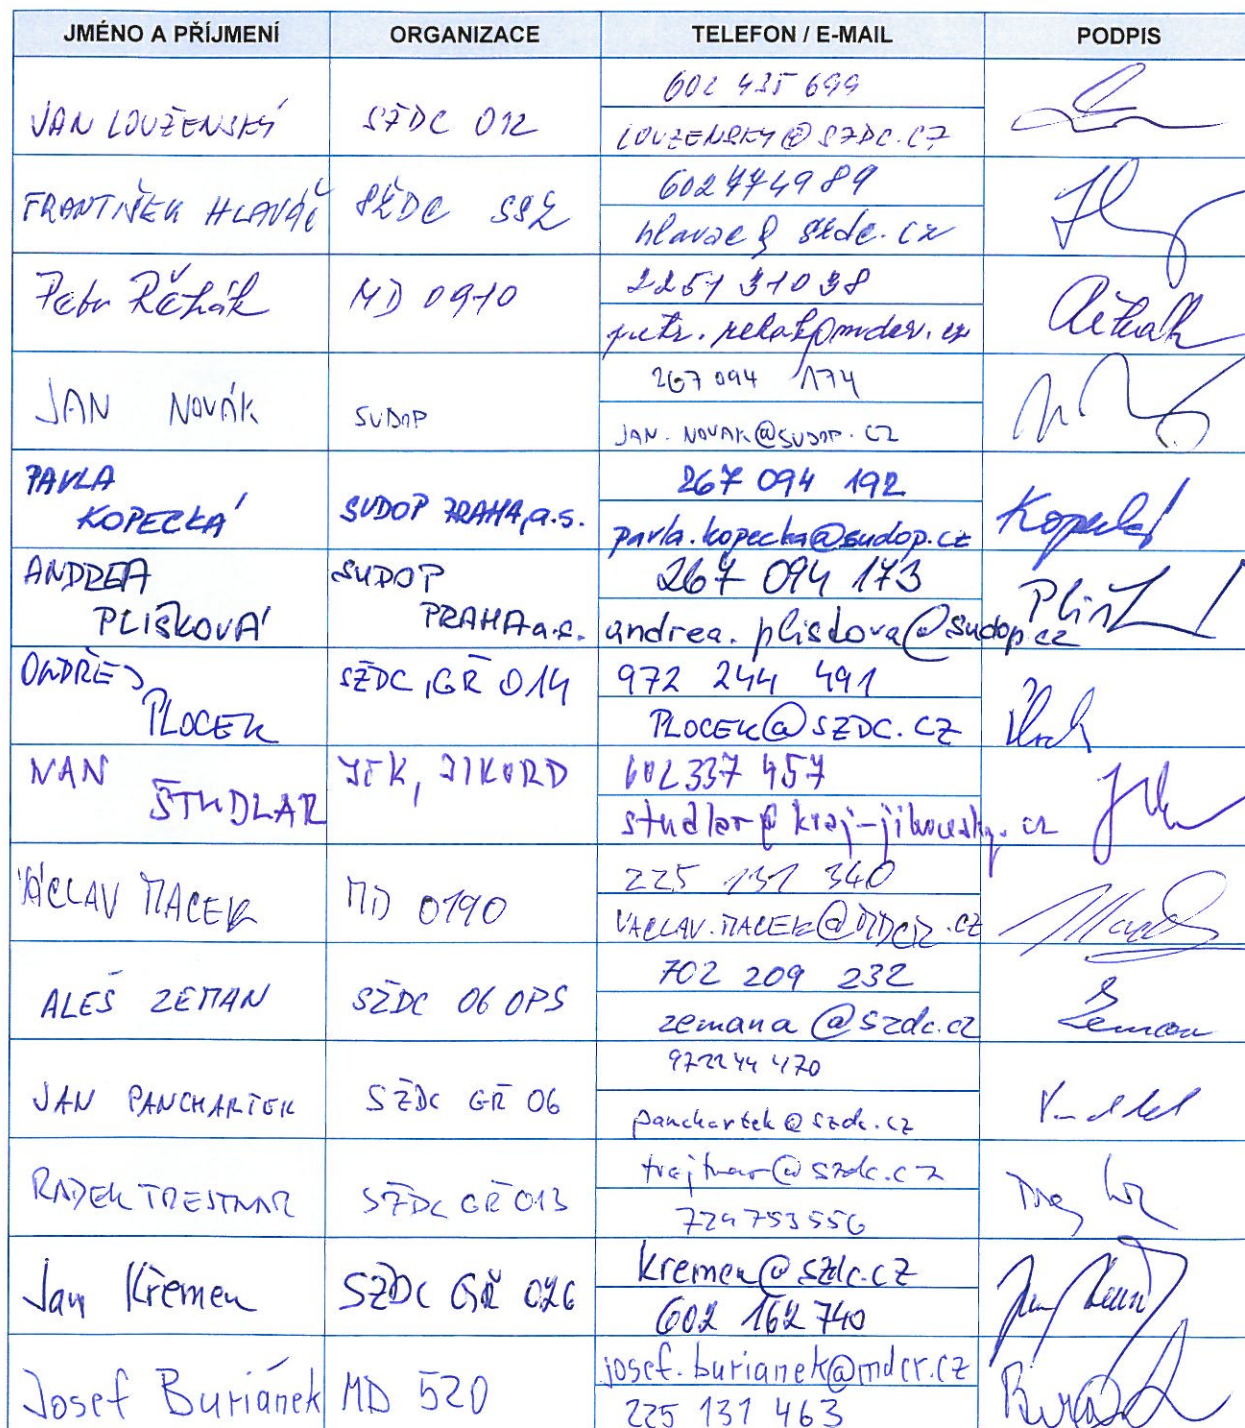 JMÉNO A PŘÍJMENÍ ORGANIZACE TELEFON / E-MAIL PODPIS
JAN LOUŽENSKÝ SŽDC 012 602 435 699
LOUZENSKY@SZDC.CZ
FRANTIŠEK HLAVÁČ SŽDC SSZ 602774989
hlavac@szdc.cz
Petr Řehák MD 0910 2251 31038
petr.rehak@mdcr.cz
JAN NOVÁK SUDOP 267 094 174
JAN.NOVAK@SUDOP.CZ
PAVLA KOPECKÁ SUDOP PRAHA, a.s. 267 094 192
pavla.kopecka@sudop.cz Kopecká
ANDREA PLIŠKOVÁ SUDOP PRAHA a.s. 267 094 173
andrea.pliskova@sudop.cz
ONDŘEJ PLOCEK SŽDC, GŘ 014 972 244 491
PLOCEK@SZDC.CZ
ŠTUDLAR JČK, JIKORD 602 337 457
studlar@kraj-jihocesky.cz
VÁCLAV MACEK MD 0190 225 131 340
VACLAV.MACEK@MDCR.CZ
ALEŠ ZEMAN SŽDC 06 OPS 702 209 232
zemana@szdc.cz Zeman
JAN PANCHARTEK SŽDC GŘ 06 972244 470
panchartek@szdc.cz
RADEK TREJTNAR SŽDC GŘ 013 trejtnar@szdc.cz
724 753 556
Jan Křemen SŽDC GŘ 026 kremen@szdc.cz
602 162 740
Josef Buriánek MD 520 josef.burianek@mdcr.cz
225 131 463